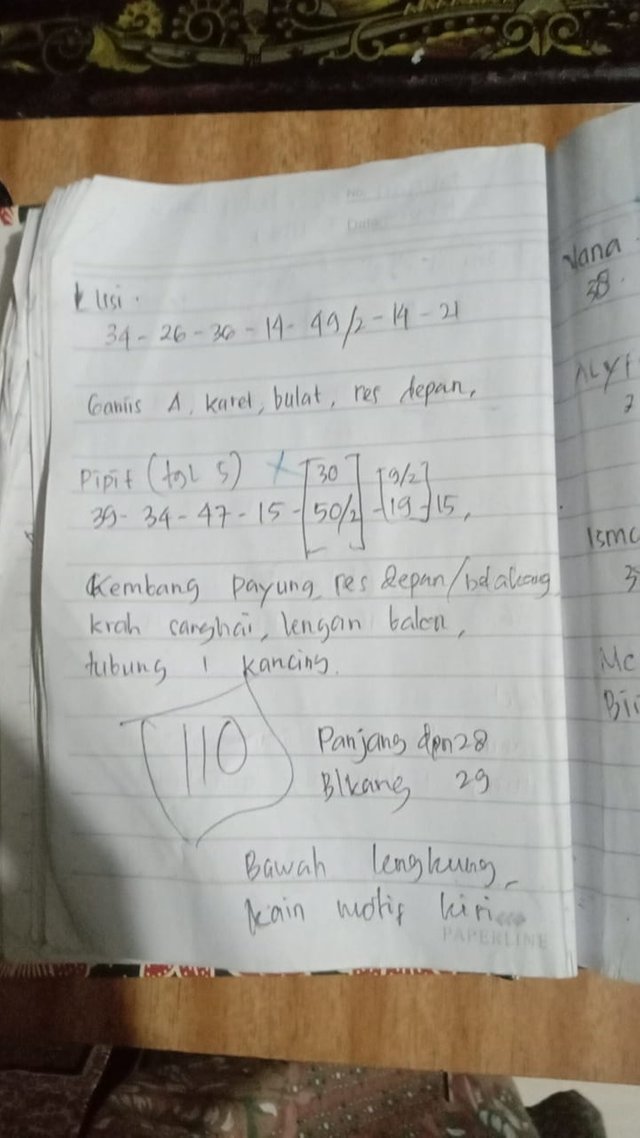 No.
Date
Lusi.
34 - 26 - 36 - 14 - 49/2 - 14 - 21
Gamis A, karet, bulat, res depan,
Pipit (tgl 5) x [30] [9/2]
39 - 34 - 47 - 15 - [50/2] - [19-] 15,
Kembang payung, res depan/belakang
krah sanghai, lengan balon,
tubung 1 kancing.
110
Panjang dpn 28
Blkang 29
Bawah lengkung,
kain motif kiri
PAPERLINE
Vana
38
ALY
Ismc
3
Mc